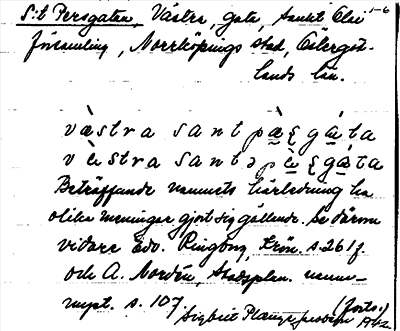 S:t Persgatan, Västra, gata, Sankt Olai 1-6
församling, Norrköpings stad, Östergöt-
lands län.
væstra sant pæʂgáta
vèstra santə pèʂgáta
Beträffande namnets härledning ha
olika meningar gjort sig gällande. Se därom
vidare Edv. Ringborg, Krön. s. 261 f.
och A. Nordén, Stadsplan. numr-
myst. s. 107.
(forts.)
1942.